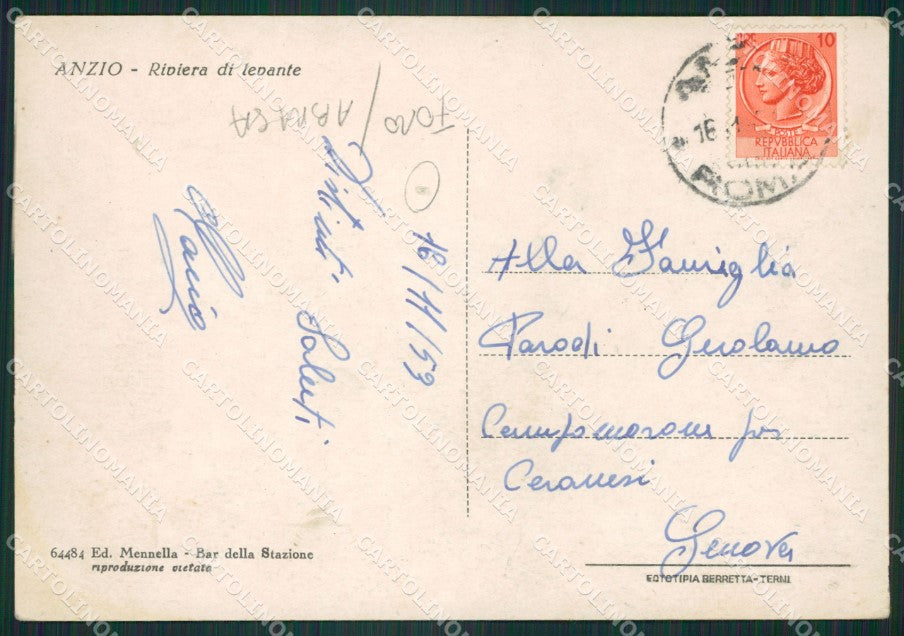 ANZIO - Riviera di levante
10
POSTE
REPVBBLICA
ITALIANA
16
ROMA
FOTO
ABRASA
16/11/53
Distinti Saluti
Mario
Alla Famiglia
Parodi Gerolamo
Campomorone per
Ceranesi
Genova
64484 Ed. Mennella - Bar della Stazione
riproduzione vietata
FOTOTIPIA BERRETTA-TERNI
CARTOLINOMANIA